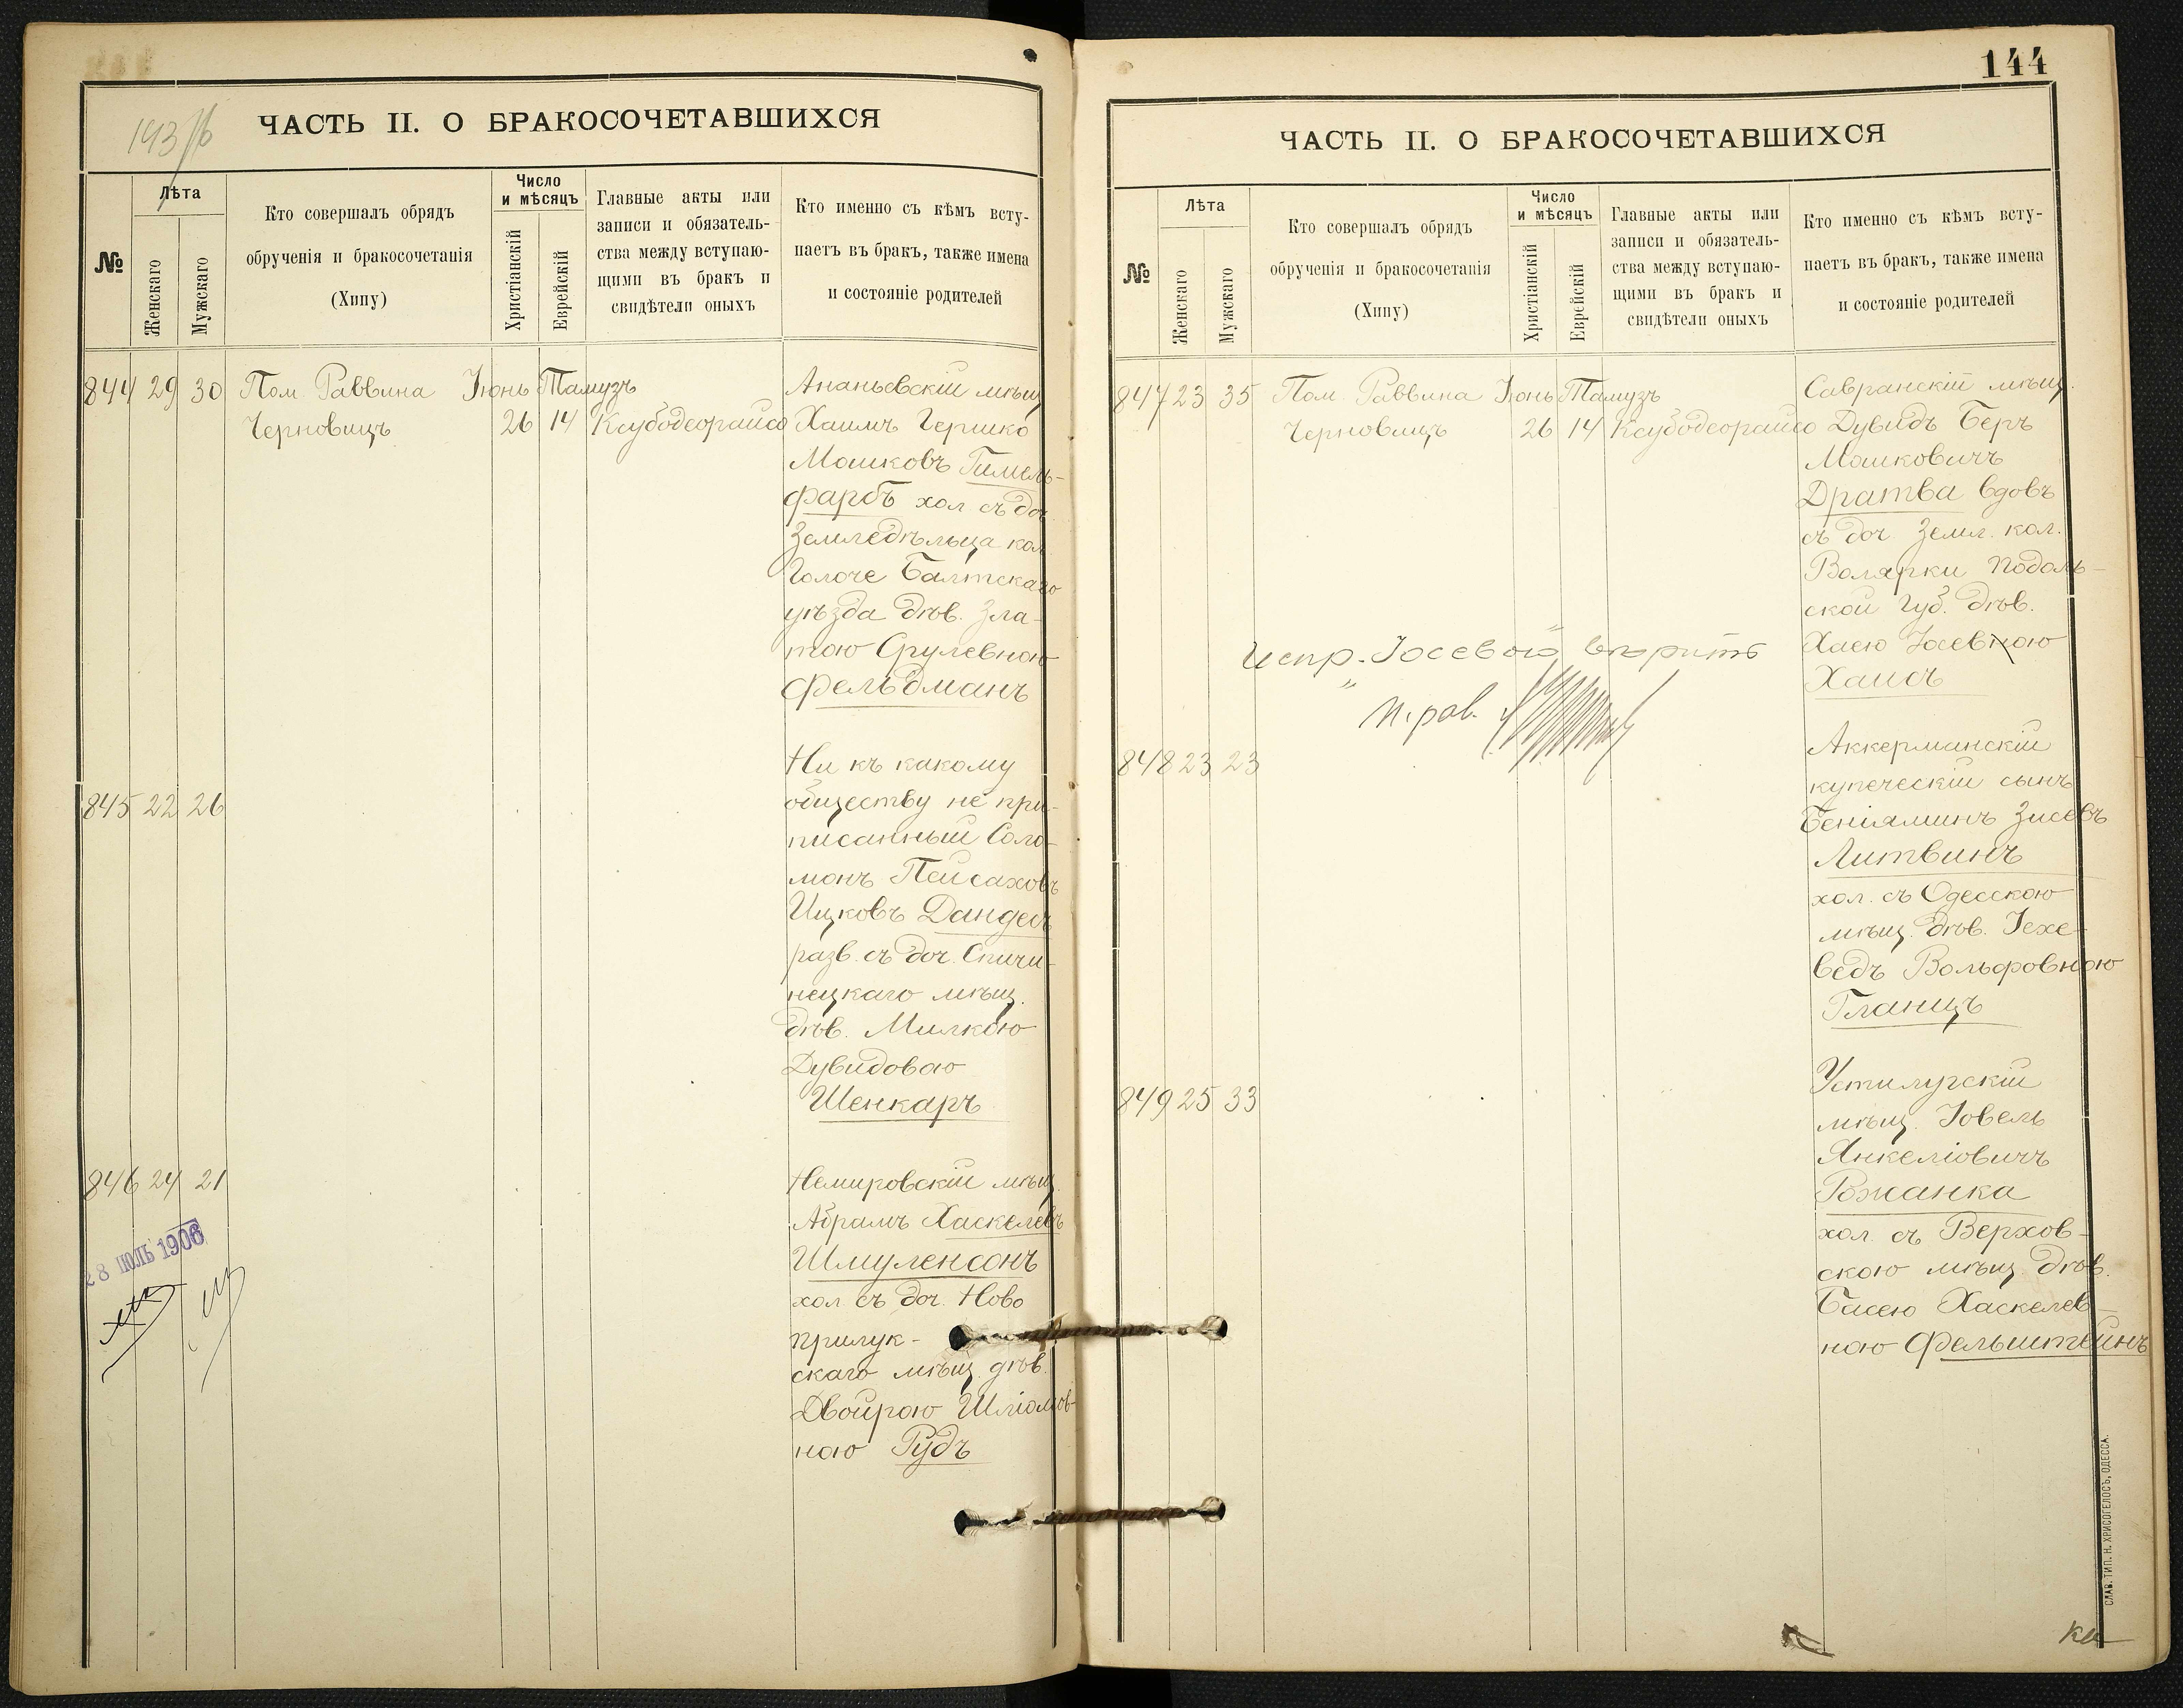 143/б
ЧАСТЬ II. О БРАКОСОЧЕТАВШИХСЯ
№
Лѣта
Женскаго
Мужскаго
Кто совершалъ обрядъ
обрученія и бракосочетанія
(Хипу)
Число
и мѣсяцъ
Христіанскій
Еврейскій
Главные акты или
записи и обязатель-
ства между вступаю-
щими въ бракъ и
свидѣтели оныхъ
Кто именно съ кѣмъ всту-
паетъ въ бракъ, также имена
и состояніе родителей
844 29 30 Пом. Раввина Іюнь Тамузъ
Черновицъ 26 14 Ксубодеорайсо
Ананьевскій мѣщ.
Хаимъ Гершко
Мошковъ Гимель-
фарбъ хол. съ доч.
Земледѣльца кол.
Голоче Балтскаго
уѣзда дѣв. Зла-
тою Срулевною
Фельдманъ
845 22 26
Ни къ какому
обществу не при-
писанный Соло-
монъ Пейсаховъ
Ицковъ Дандесъ
разв. съ доч. Спичи-
нецкаго мѣщ.
дѣв. Милкою
Дувидовою
Шенкаръ
846 24 21
Немировскій мѣщ.
Абрамъ Хаскелевъ
Шмуленсонъ
хол. съ доч. Ново
прилук-
скаго мѣщ. дѣв.
Двойрою Шліомов-
ною Рудъ
28 ІЮЛЬ 1906
144
ЧАСТЬ II. О БРАКОСОЧЕТАВШИХСЯ
№
Лѣта
Женскаго
Мужскаго
Кто совершалъ обрядъ
обрученія и бракосочетанія
(Хипу)
Число
и мѣсяцъ
Христіанскій
Еврейскій
Главные акты или
записи и обязатель-
ства между вступаю-
щими въ бракъ и
свидѣтели оныхъ
Кто именно съ кѣмъ всту-
паетъ въ бракъ, также имена
и состояніе родителей
847 23 35 Пом. Раввина Іюнь Тамузъ
Черновицъ 26 14 Ксубодеорайсо
Савранскій мѣщ.
Дувидъ Беръ
Мошковичъ
Дратва вдовъ
съ доч. Земл. кол.
Волярки Подоль-
ской Губ. дѣв.
Хаею Іосевною
Хаисъ
Испр. „Іосевой“ вѣрить
п. рав.
848 23 23
Аккерманскій
купеческій сынъ
Беніяминъ Зисевъ
Литвинъ
хол. съ Одесскою
мѣщ. дѣв. Іехе-
ведъ Вольфовною
Гланцъ
849 25 33
Устилугскій
мѣщ. Іовель
Янкеліовичъ
Рожанка
хол. съ Верхов-
скою мѣщ. дѣв.
Басею Хаскелев-
ною Фельштейнъ
СЛАВ. ТИП. Н. ХРИСОГЕЛОСЪ, ОДЕССА.